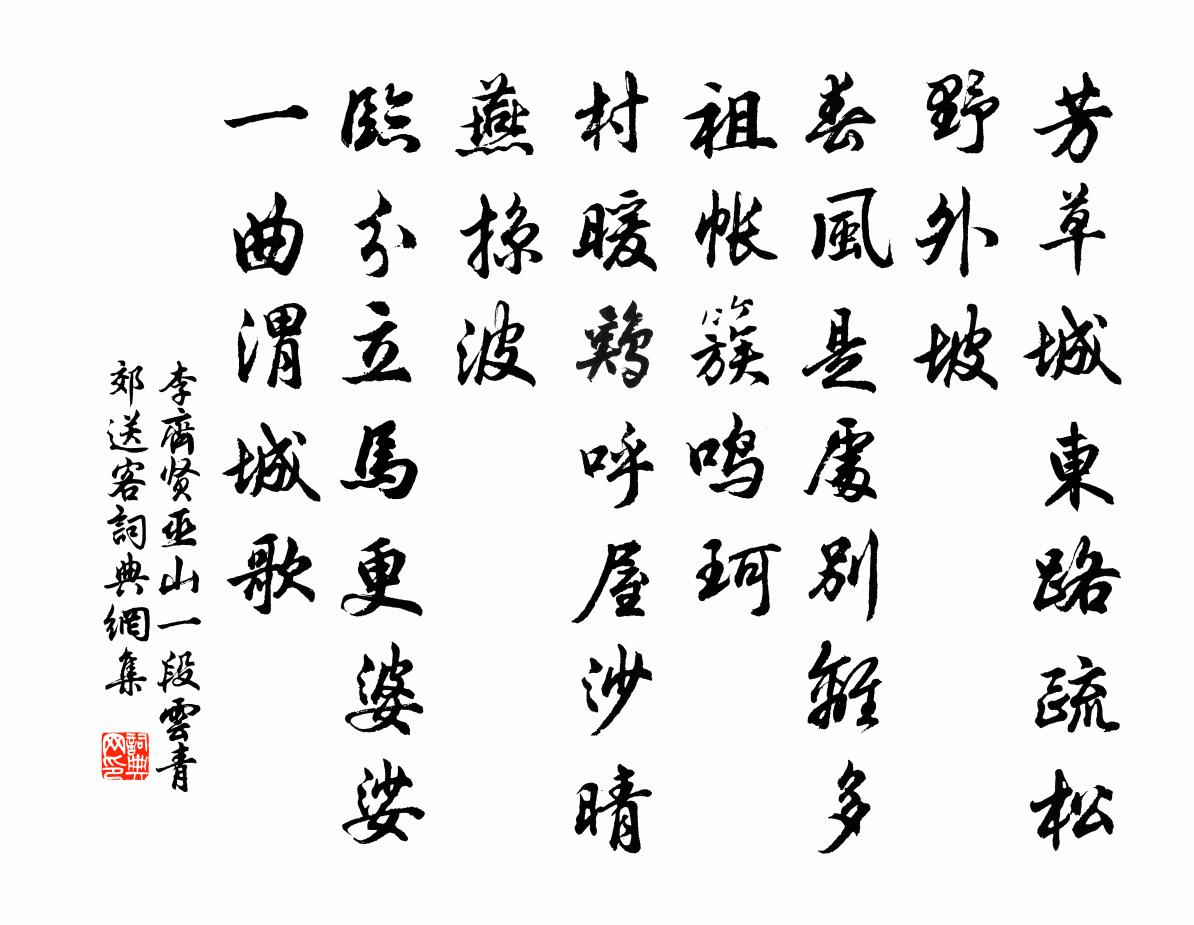 芳草城東路疏松
野外坡
春風是處別離多
祖帳簇鳴珂
村暖鶏呼屋沙晴
燕掠波
臨分立馬更婆娑
一曲渭城歌
李齊贤巫山一段雲青
郊送客詞典網集
詞典网印